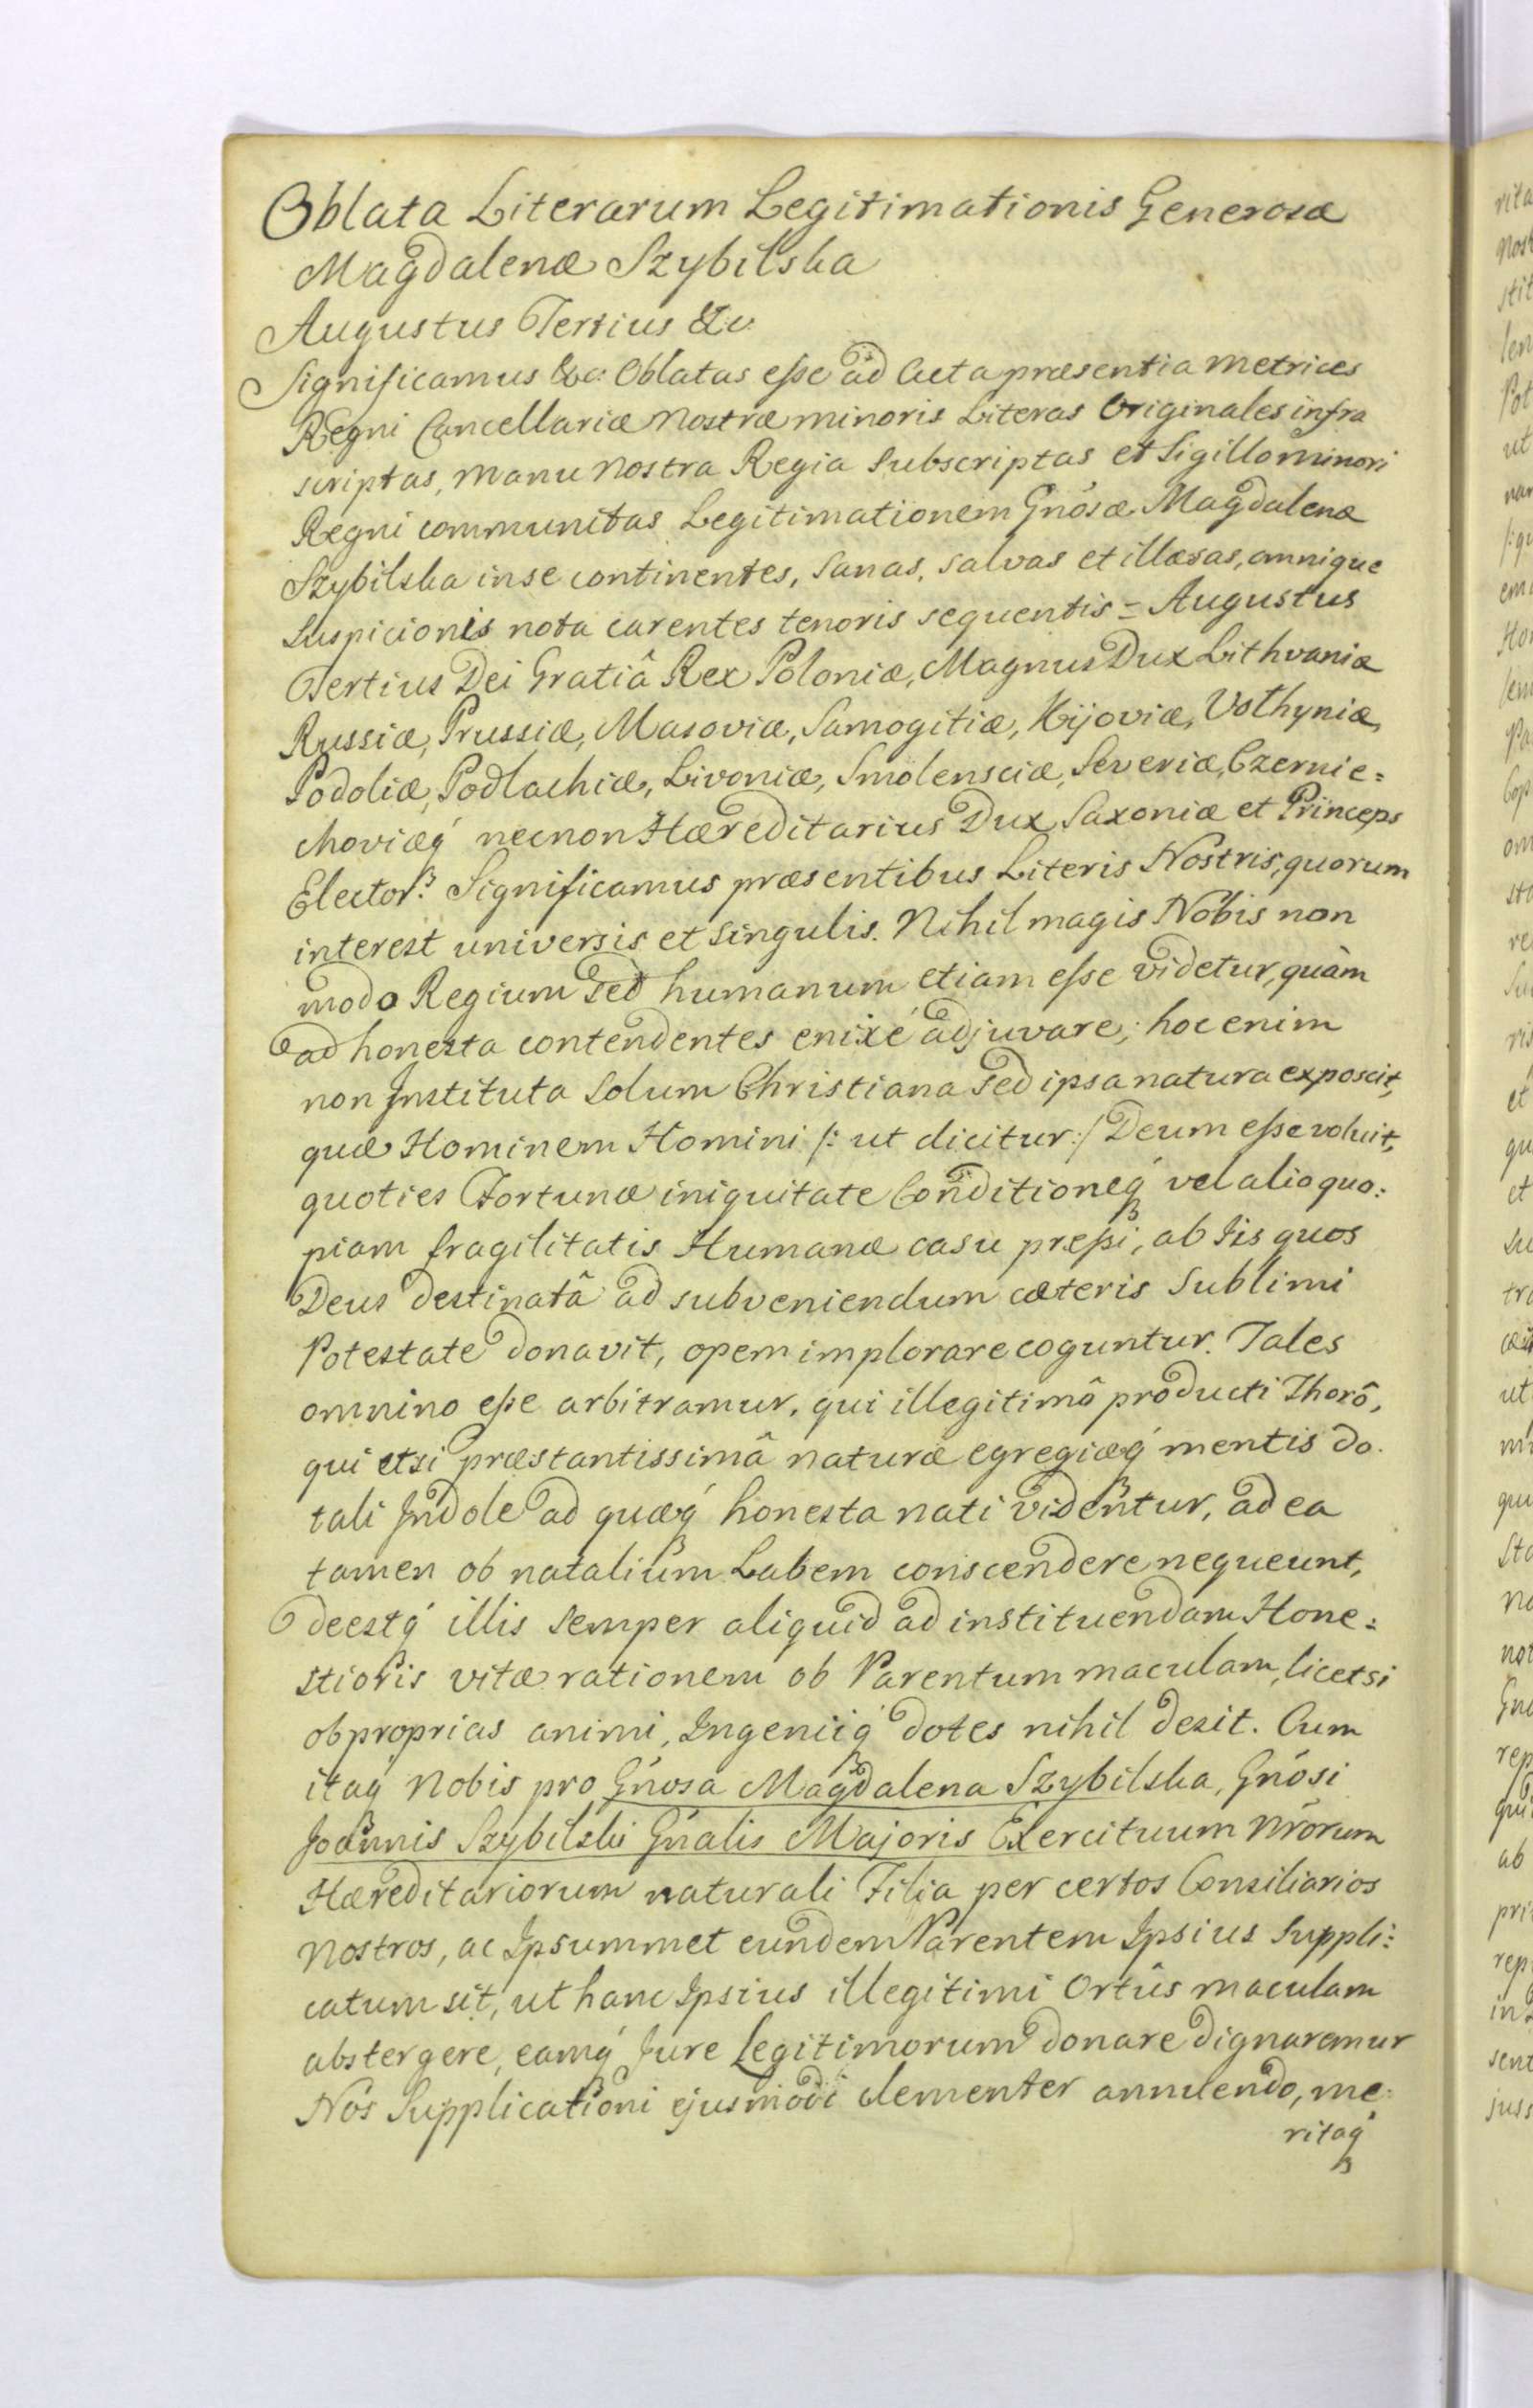 Oblata Literarum Legitimationis Generosæ
Magdalenæ Szybilska
Augustus Tertius &c.
Significamus &c: Oblatas esse ad Acta præsentia Metrices
Regni Cancellariæ Nostræ minoris Literas Originales infra
scriptas, Manu Nostra Regia Subscriptas et Sigillo minori
Regni communitas Legitimationem Gnosæ Magdalenæ
Szybilska in se continentes, Sanas, salvas et illæsas, omnique
Suspicionis nota carentes tenoris sequentis = Augustus
Tertius Dei Gratiâ Rex Poloniæ, Magnus Dux Lithvaniæ
Russiæ, Prussiæ, Masoviæ, Samogitiæ, Kijoviæ, Volhyniæ,
Podoliæ, Podlachiæ, Livoniæ, Smolensciæ, Severiæ, Czernie=
choviæq́ necnon Hæreditarius Dux Saxoniæ et Princeps
Elector. Significamus præsentibus Literis Nostris, quorum
interest universis et singulis. Nihil magis Nobis non
modo Regium sed humanum etiam esse videtur, quàm
ad honesta contendentes enixé adjuvare; hoc enim
non Instituta Solum Christiana sed ipsa natura exposcit,
quæ Hominem Homini /: ut dicitur :/ Deum esse voluit,
quoties Fortunæ iniquitate Conditioneq́ vel alio quo:
piam fragilitatis Humanæ casu pressi, ab Iis quos
Deus destinatâ ad subveniendum cæteris Sublimi
Potestate donavit, opem implorare coguntur. Tales
omnino esse arbitramur, qui illegitimô producti Thorô,
qui etsi præstantissimâ naturæ egregiæq́ mentis do.
tali Indole ad quæq́ honesta nati videntur, ad ea
tamen ob natalium Labem conscendere nequeunt,
deestq́ illis semper aliquid ad instituendam Hone:
stioris vitæ rationem ob Parentum maculam, licet si
ob proprias animi, Ingeniiq́ dotes nihil desit. Cum
itaq́ Nobis pro Gnosa Magdalena Szybilska, Gnosi
Joannis Szybilski Gnalis Majoris Exercituum Nrorum
Hæreditariorum naturali Filia per certos Consiliarios
Nostros, ac Ipsummet eundem Parentem Ipsius Suppli:
catum sit, ut hanc Ipsius illegitimi Ortûs maculam
abstergere, eamq́ Jure Legitimorum donare dignaremur
Nos Supplicationi ejusmodi clementer annuendo, me:
ritaq́